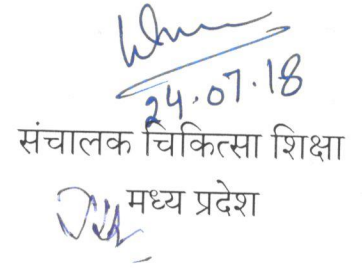 24.07.18
संचालक चिकित्सा शिक्षा
मध्य प्रदेश